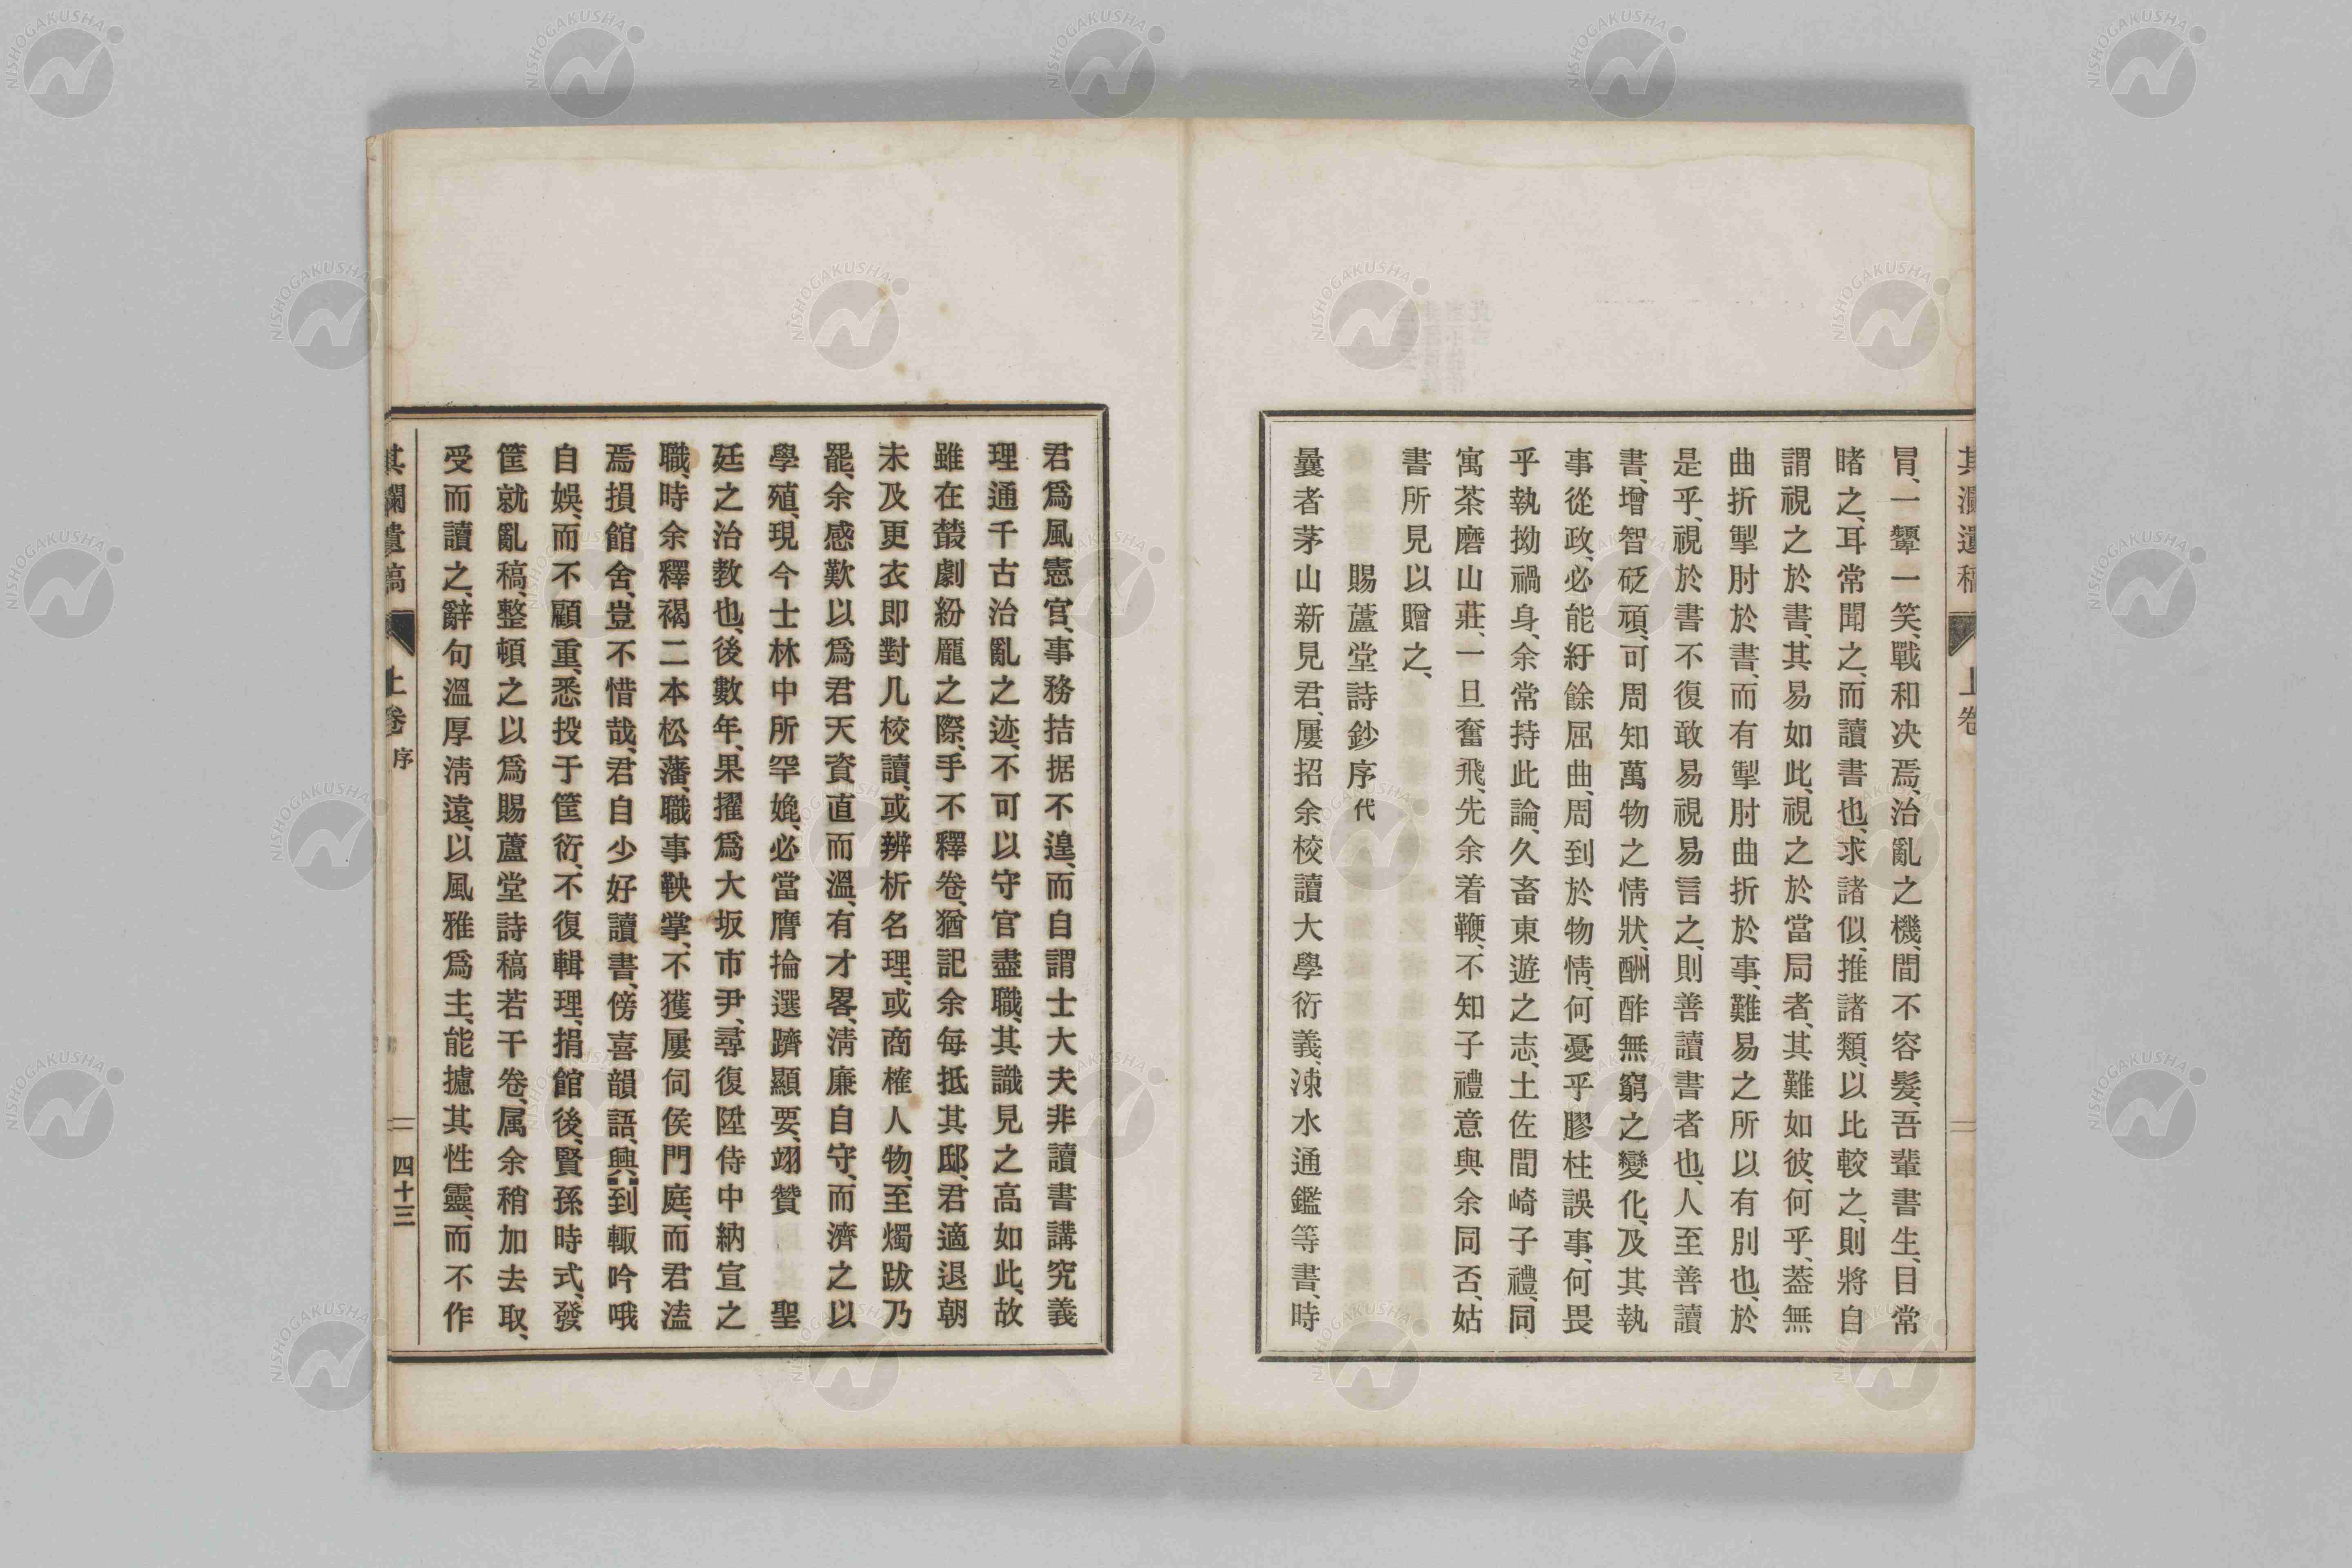 其瀾遺稿 上卷
冐、一顰一笑、戰和决焉、治亂之機、間不容髮、吾輩書生、目常
睹之、耳常聞之、而讀書也、求諸似、推諸類、以比較之、則將自
謂視之於書、其易如此、視之於當局者、其難如彼、何乎、葢無
曲折掣肘於書、而有掣肘曲折於事、難易之所以有別也、於
是乎、視於書不復敢易視易言之、則善讀書者也、人至善讀
書、增智砭頑、可周知萬物之情狀、酬酢無窮之變化、及其執
事從政、必能紆餘屈曲、周到於物情、何憂乎膠柱誤事、何畏
乎執拗禍身、余常持此論、久畜東遊之志、土佐間崎子禮、同
寓茶磨山莊、一旦奮飛、先余着鞭、不知子禮意與余同否、姑
書所見以贈之、
賜蘆堂詩鈔序代
曩者茅山新見君、屢招余校讀大學衍義、涑水通鑑等書、時
君爲風憲官、事務拮据不遑、而自謂士大夫非讀書講究義
理通千古治亂之迹、不可以守官盡職、其識見之高如此、故
雖在蘩劇紛龎之際、手不釋卷、猶記余每抵其邸、君適退朝
未及更衣即對几校讀、或辨析名理、或商榷人物、至燭跋乃
罷、余感歎以爲君天資直而溫、有才畧、淸廉自守、而濟之以
學殖、現今士林中所罕媲、必當膺掄選躋顯要、翊贊 聖
廷之治教也、後數年、果擢爲大坂市尹、尋復陞侍中納宣之
職、時余釋褐二本松藩、職事鞅掌、不獲屢伺侯門庭、而君溘
焉損館舍、豈不惜哉、君自少好讀書、傍喜韻語、興到輙吟哦
自娯、而不顧重、悉投于筐衍、不復輯理、捐館後、賢孫時式、發
筐就亂稿、整頓之以爲賜蘆堂詩稿若干卷、属余稍加去取、
受而讀之、辭句溫厚淸遠、以風雅爲主、能攄其性靈、而不作
其瀾遺稿 上卷 序 四十三